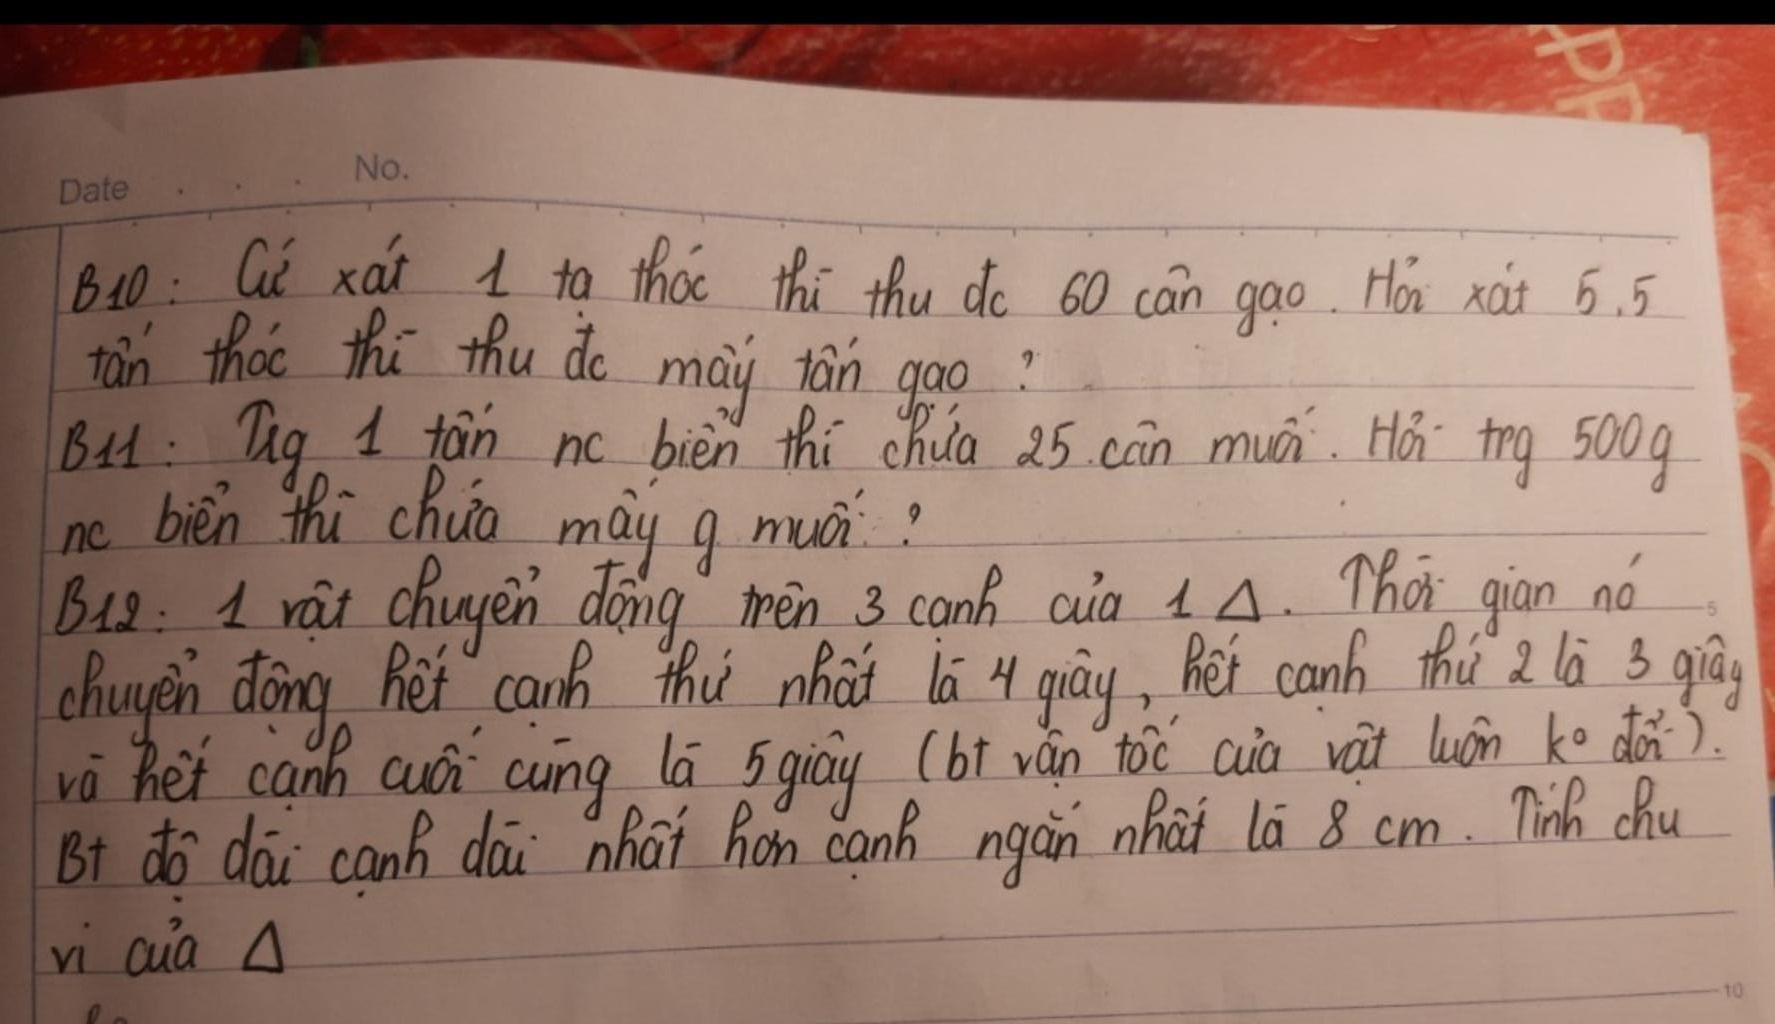 Date No.
B10: Cứ xát 1 tạ thóc thì thu đc 60 cân gạo. Hỏi xát 5,5
tấn thóc thì thu đc mấy tấn gạo?
B11: Trg 1 tấn nc biển thì chứa 25 cân muối. Hỏi trg 500g
nc biển thì chứa mấy g muối?
B12: 1 vật chuyển động trên 3 cạnh của 1 Δ. Thời gian nó
chuyển động hết cạnh thứ nhất là 4 giây, hết cạnh thứ 2 là 3 giây
5
và hết cạnh cuối cùng là 5 giây (bt vận tốc của vật luôn ko đổi).
Bt độ dài cạnh dài nhất hơn cạnh ngắn nhất là 8 cm. Tính chu
vi của Δ
10